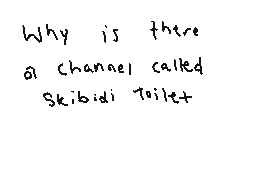 Why is there
a channel called
Skibidi Toilet